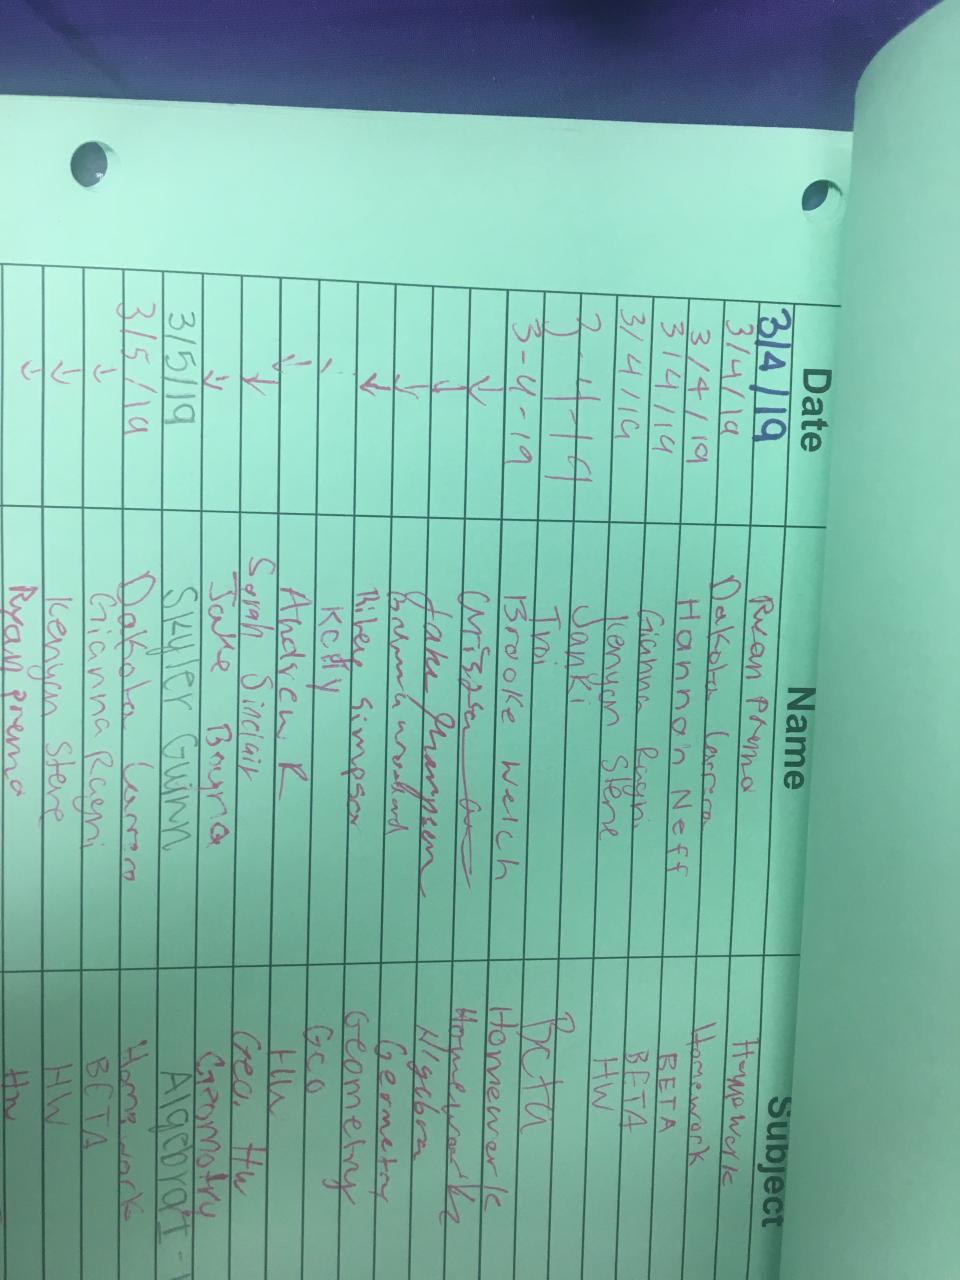 Date Name Subject
3/4/19 Ryan Prema Homework
3/4/19 Dakota Homework
3/4/19 Hannah Neff BETA
3/4/19 Gianna Rageni BETA
3/4/19 Kenyon Stene HW
3-4-19 Janki
3-4-19 Troi Beta
Brooke Welch Homework
Homework
Jake Thampson Algebra
Geometry
Riley Simpson Geometry
Kelly Geo
Andrew R HW
Sarah Sinclair Geo. HW
Jake Bayna Geometry
3/5/19 Skyler Guinn Algebra I
3/5/19 Dakota Homework
Gianna Rageni BETA
Kenyon Stene HW
Ryan Prema HW